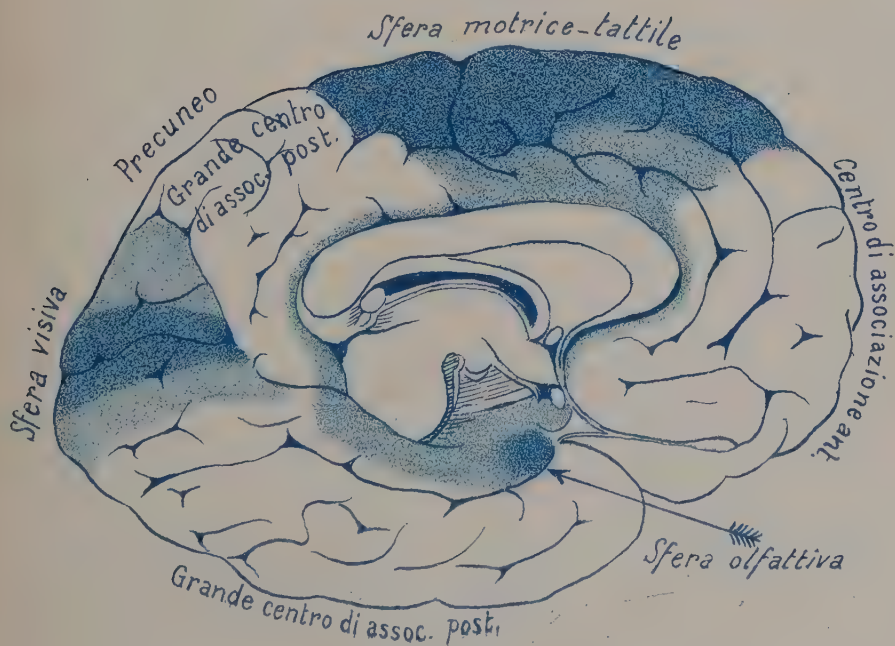 Sfera motrice-tattile
Precuneo
Grande centro
di assoc. post.
Centro di associazione ant.
Sfera visiva
Sfera olfattiva
Grande centro di assoc. post.